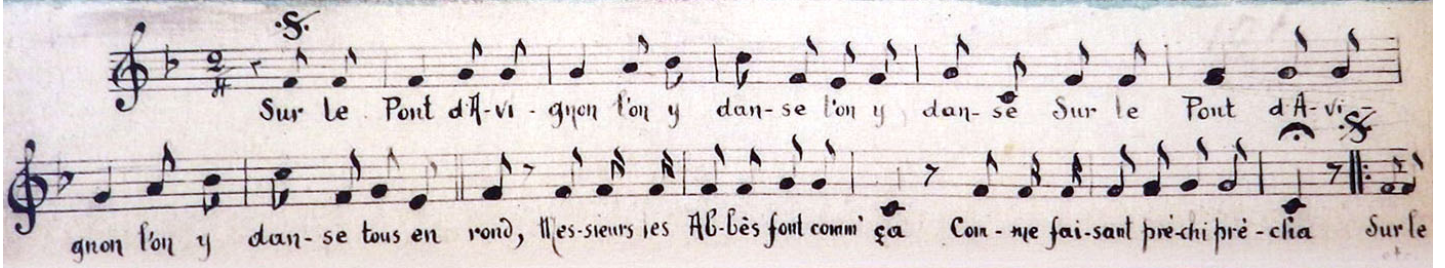 Sur le Pont d'A-vi-gnon l'on y dan-se l'on y dan-se Sur le Pont d'A-vi-
gnon l'on y dan-se tous en rond, Mes-sieurs les Ab-bés font comm' ça Com-me fai-sant pré-chi pré-cha Sur le